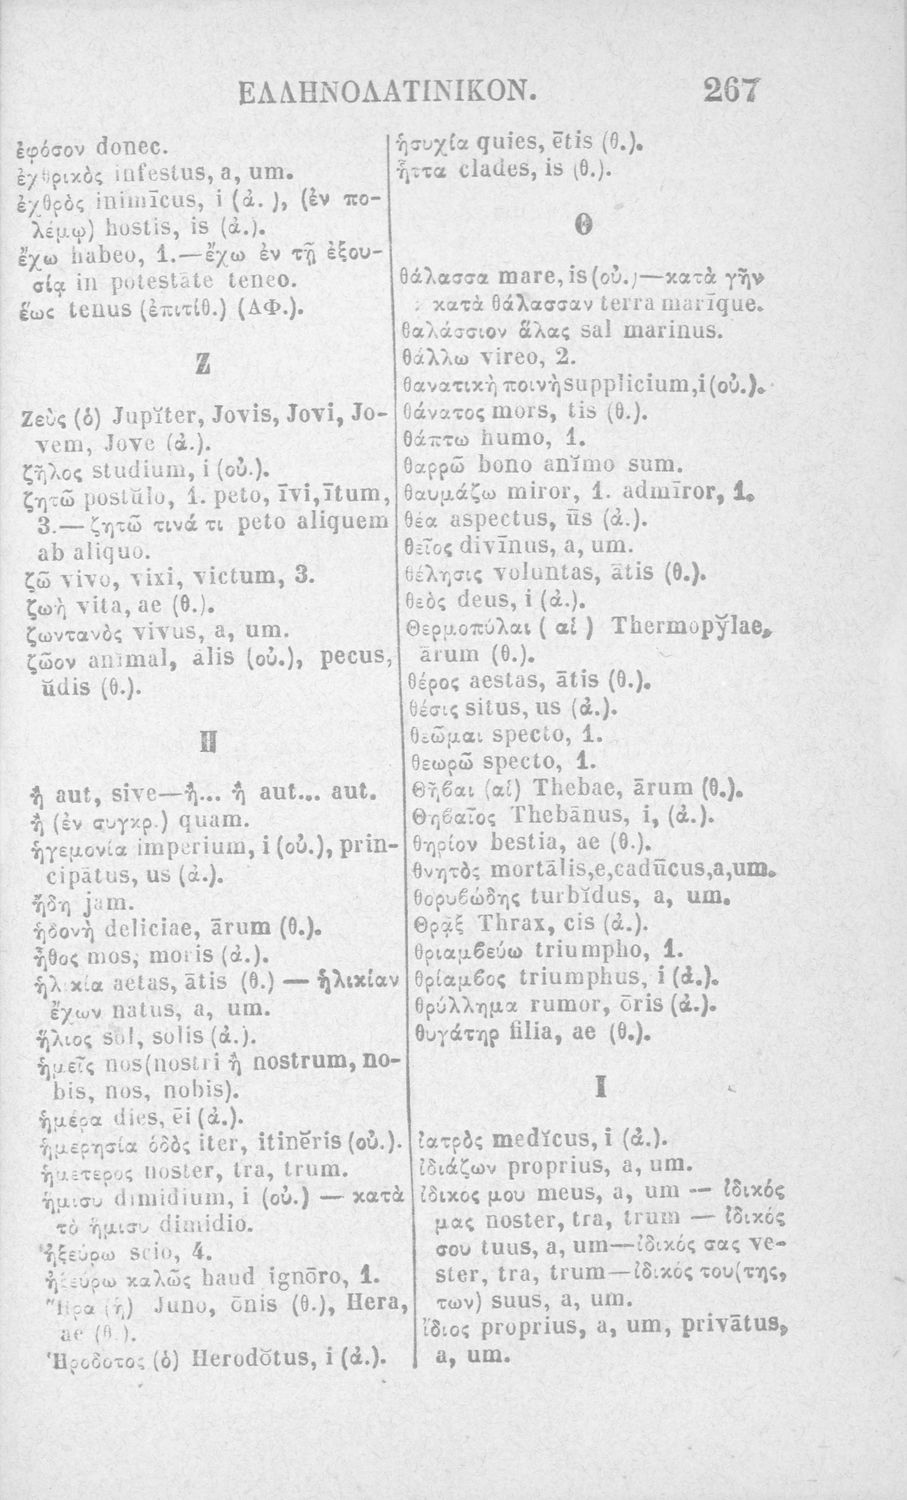 ΕΛΛΗΝΟΛΑΤΙΝΙΚΟΝ. 267
ἐφόσον donec.
ἐχθρικὸς infestus, a, um.
ἐχθρὸς inimīcus, i (ἀ.), (ἐν πο-
λέμῳ) hostis, is (ἀ.).
ἔχω habeo, 1.—ἔχω ἐν τῇ ἐξου-
σίᾳ in potestāte teneo.
ἕως tenus (ἐπιτίθ.) (ΑΦ.).
Ζ
Ζεὺς (ὁ) Jupĭter, Jovis, Jovi, Jo-
vem, Jove (ἀ.).
ζῆλος studium, i (οὐ.).
ζητῶ postŭlo, 1. peto, īvi, ītum,
3.— ζητῶ τινά τι peto aliquem
ab aliquo.
ζῶ vivo, vixi, victum, 3.
ζωὴ vita, ae (θ.).
ζωντανὸς vivus, a, um.
ζῶον anĭmal, ālis (οὐ.), pecus,
ŭdis (θ.).
Η
ἢ aut, sive—ἢ... ἢ aut... aut.
ἢ (ἐν συγκρ.) quam.
ἡγεμονία imperium, i (οὐ.), prin-
cipātus, us (ἀ.).
ἤδη jam.
ἡδονὴ deliciae, ārum (θ.).
ἦθος mos, moris (ἀ.).
ἡλικία aetas, ātis (θ.) — ἡλικίαν
ἔχων natus, a, um.
ἥλιος sol, solis (ἀ.).
ἡμεῖς nos (nostri ἢ nostrum, no-
bis, nos, nobis).
ἡμέρα dies, ēi (ἀ.).
ἡμερησία ὁδὸς iter, itinĕris (οὐ.).
ἡμέτερος noster, tra, trum.
ἥμισυ dimidium, i (οὐ.) — κατὰ
τὸ ἥμισυ dimidio.
ἠξεύρω scio, 4.
ἠξεύρω καλῶς haud ignōro, 1.
Ἥρα (ἡ) Juno, ōnis (θ.), Hera,
ae (θ.).
Ἡρόδοτος (ὁ) Herodŏtus, i (ἀ.).
ἡσυχία quies, ētis (θ.).
ἧττα clades, is (θ.).
Θ
θάλασσα mare, is (οὐ.)—κατὰ γῆν
κατὰ θάλασσαν terra marīque.
θαλάσσιον ἅλας sal marinus.
θάλλω vireo, 2.
θανατικὴ ποινὴ supplicium, i (οὐ.).
θάνατος mors, tis (θ.).
θάπτω humo, 1.
θαρρῶ bono anĭmo sum.
θαυμάζω miror, 1. admīror, 1.
θέα aspectus, ūs (ἀ.).
θεῖος divīnus, a, um.
θέλησις voluntas, ātis (θ.).
θεὸς deus, i (ἀ.).
Θερμοπύλαι (αἱ) Thermopy̆lae,
ārum (θ.).
θέρος aestas, ātis (θ.).
θέσις situs, us (ἀ.).
θεῶμαι specto, 1.
θεωρῶ specto, 1.
Θῆβαι (αἱ) Thebae, ārum (θ.).
Θηβαῖος Thebānus, i, (ἀ.).
θηρίον bestia, ae (θ.).
θνητὸς mortālis, e, cadūcus, a, um.
θορυβώδης turbĭdus, a, um.
Θρᾷξ Thrax, cis (ἀ.).
θριαμβεύω triumpho, 1.
θρίαμβος triumphus, i (ἀ.).
θρύλλημα rumor, ōris (ἀ.).
θυγάτηρ filia, ae (θ.).
Ι
ἰατρὸς medĭcus, i (ἀ.).
ἰδιάζων proprius, a, um.
ἰδικος μου meus, a, um — ἰδικός
μας noster, tra, trum — ἰδικός
σου tuus, a, um—ἰδικός σας ve-
ster, tra, trum—ἰδικός του (της,
των) suus, a, um.
ἴδιος proprius, a, um, privātus,
a, um.